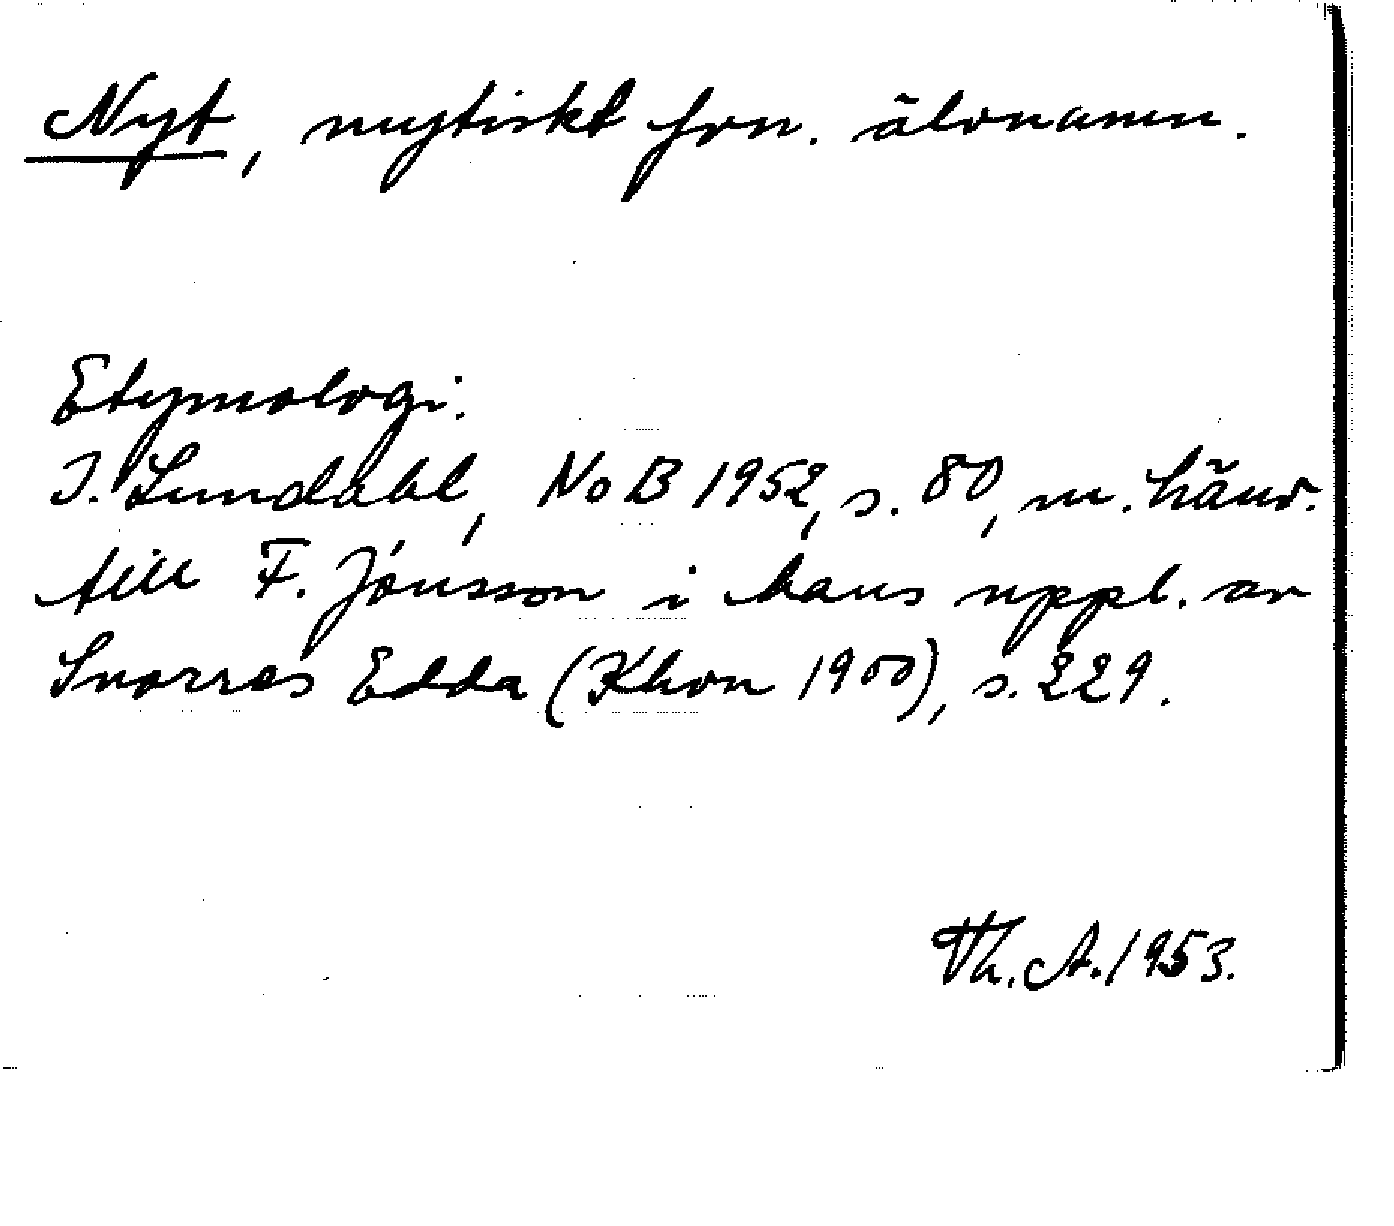 Nyt, mytiskt fvn. älvnamn.
Etymologi.
I. Lundahl, NoB 1952, s. 80, m. hänv.
till F. Jónsson i hans uppl. av
Snorres Edda (Khvn 1900), s. 229.
Th. A. 1953.